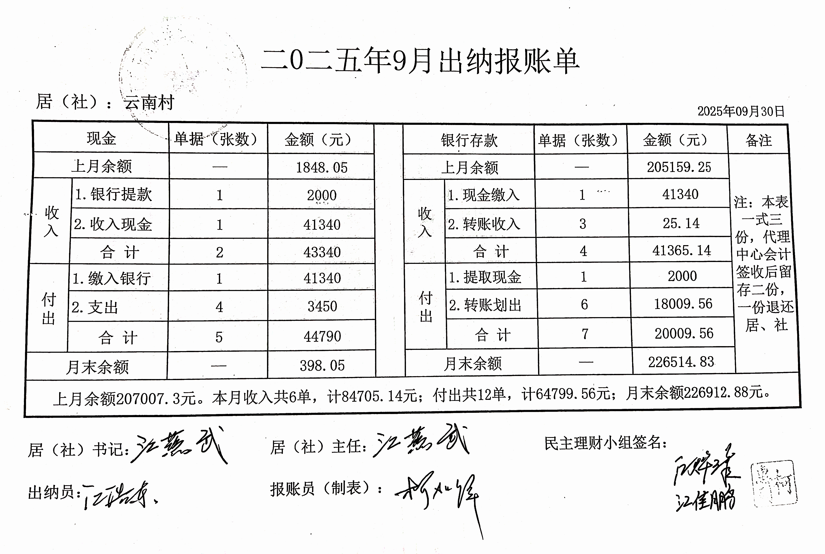 二0二五年9月出纳报账单
居（社）：云南村
2025年09月30日
现金 单据（张数） 金额（元） 银行存款 单据（张数） 金额（元） 备注
上月余额 — 1848.05 上月余额 — 205159.25
收入 1.银行提款 1 2000 收入 1.现金缴入 1 41340
2.收入现金 1 41340 2.转账收入 3 25.14
合计 2 43340 合计 4 41365.14
付出 1.缴入银行 1 41340 付出 1.提取现金 1 2000
2.支出 4 3450 2.转账划出 6 18009.56
合计 5 44790 合计 7 20009.56
月末余额 — 398.05 月末余额 — 226514.83
注：本表
一式三
份，代理
中心会计
签收后留
存二份，
一份退还
居、社
上月余额207007.3元。本月收入共6单，计84705.14元；付出共12单，计64799.56元；月末余额226912.88元。
居（社）书记：江燕武 居（社）主任：江燕武 民主理财小组签名：
出纳员： 报账员（制表）：
江佳鹏